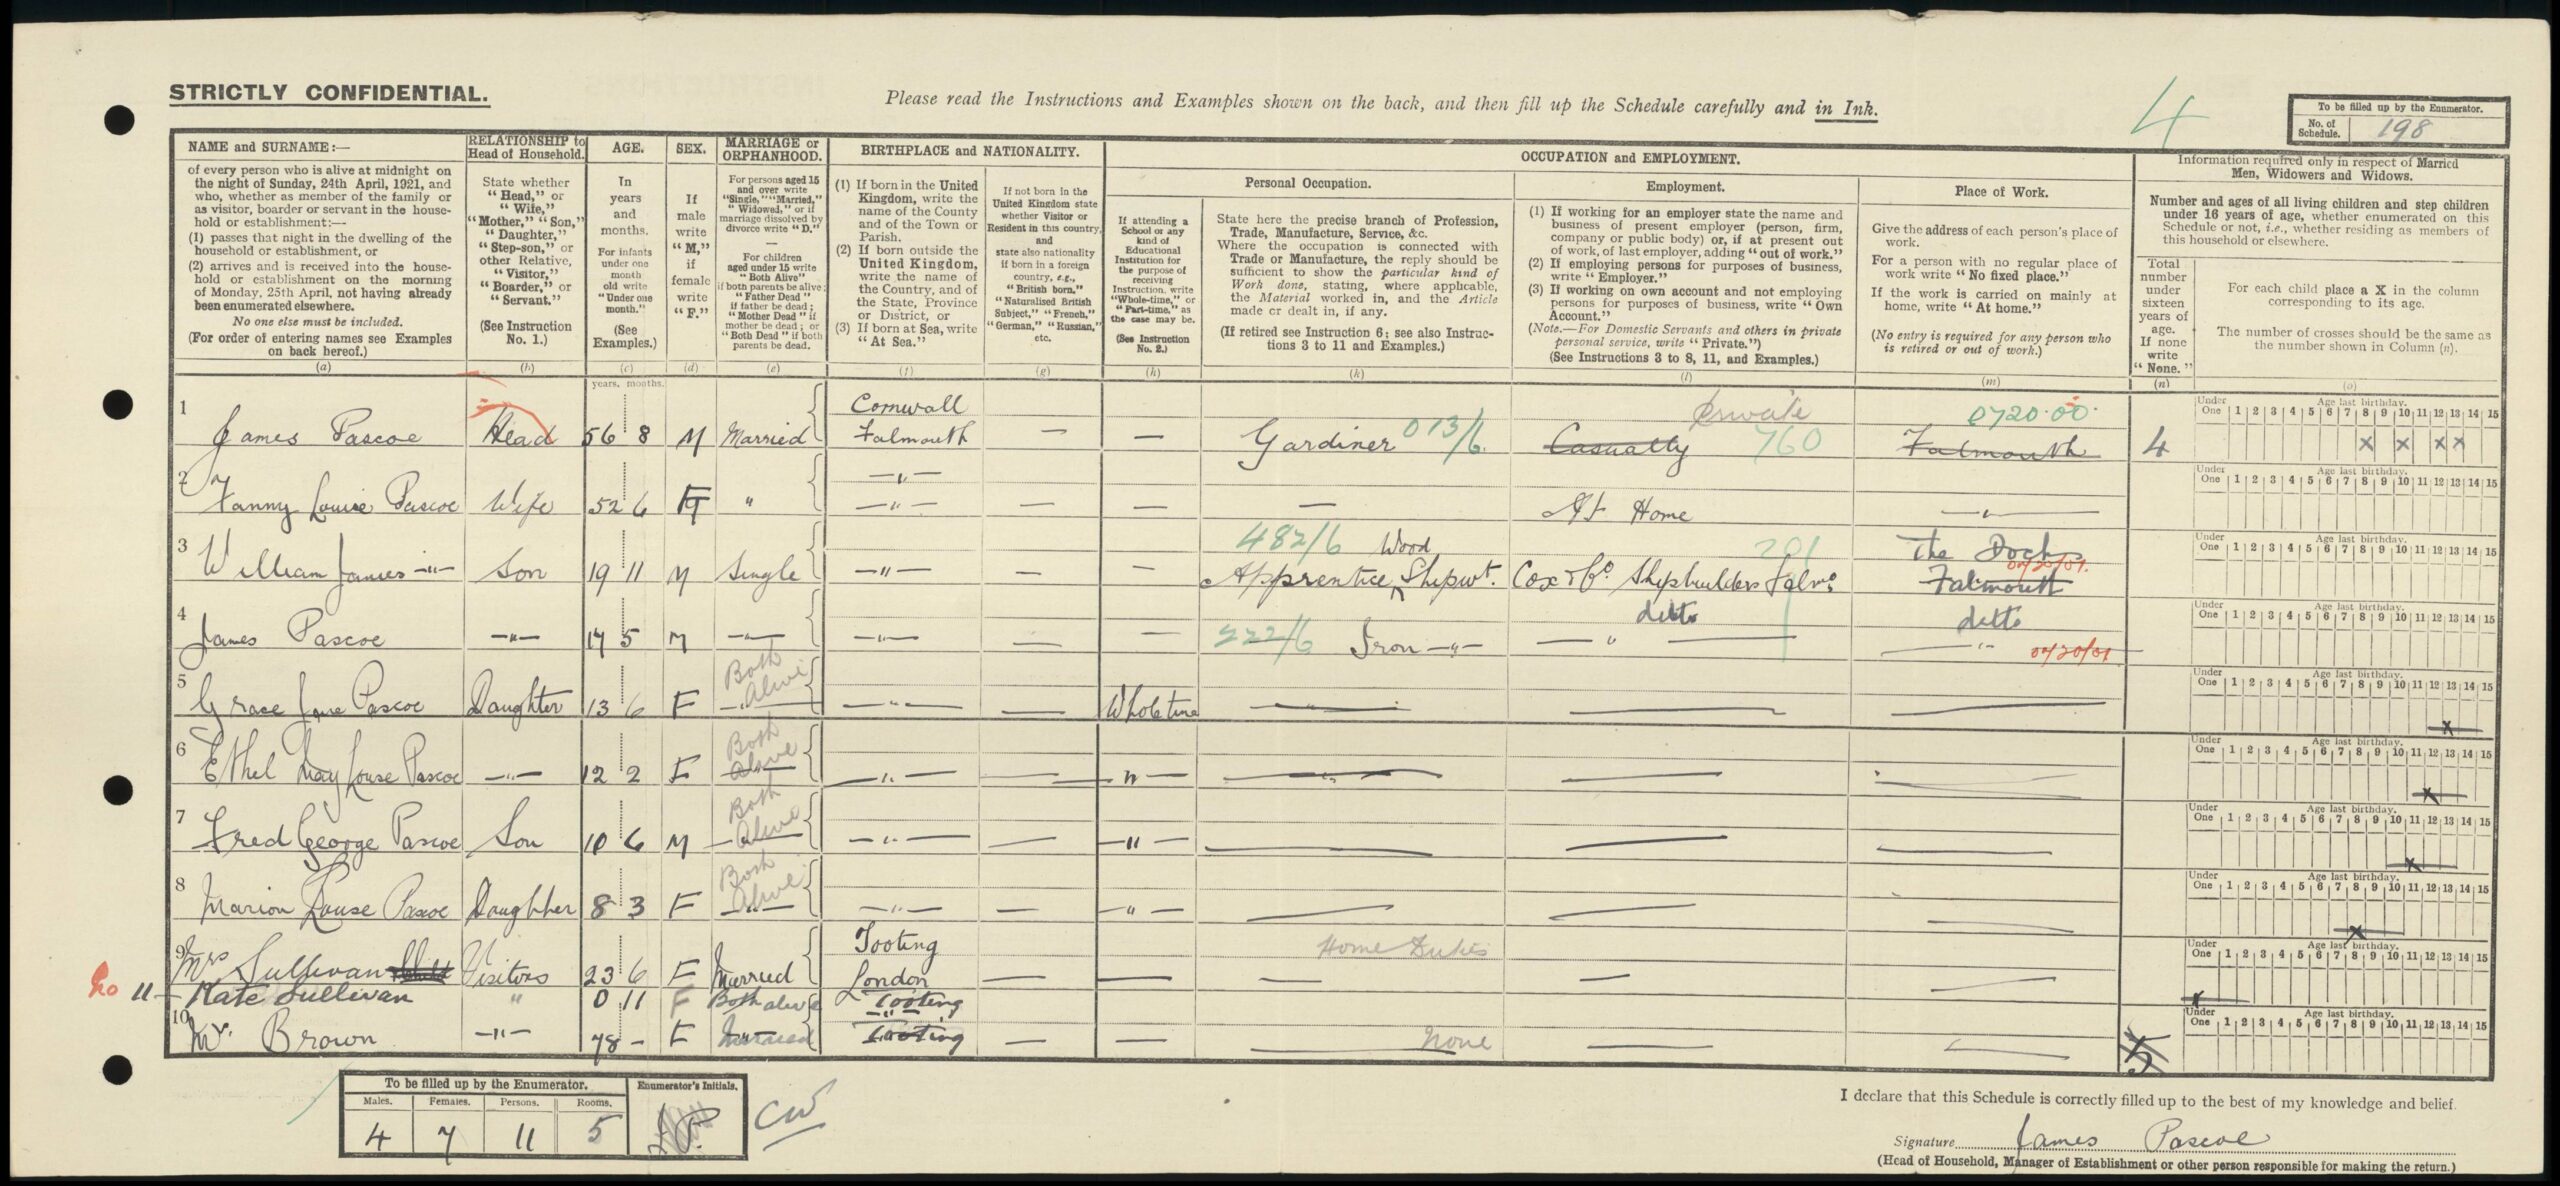 STRICTLY CONFIDENTIAL.
Please read the Instructions and Examples shown on the back, and then fill up the Schedule carefully and in Ink.
4
To be filled up by the Enumerator.
No. of Schedule. 198
NAME and SURNAME:—
of every person who is alive at midnight on
the night of Sunday, 24th April, 1921, and
who, whether as member of the family or
as visitor, boarder or servant in the house-
hold or establishment:—
(1) passes that night in the dwelling of the
household or establishment, or
(2) arrives and is received into the house-
hold or establishment on the morning
of Monday, 25th April, not having already
been enumerated elsewhere.
No one else must be included.
(For order of entering names see Examples
on back hereof.)
(a)
RELATIONSHIP to
Head of Household.
State whether
"Head," or
"Wife,"
"Mother," "Son,"
"Daughter,"
"Step-son," or
other Relative,
"Visitor,"
"Boarder," or
"Servant."
(See Instruction
No. 1.)
(b)
AGE.
In
years
and
months.
For infants
under one
month
old write
"Under one
month."
(See
Examples.)
(c)
years. months.
SEX.
If
male
write
"M,"
if
female
write
"F."
(d)
MARRIAGE or
ORPHANHOOD.
For persons aged 15
and over write
"Single," "Married,"
"Widowed," or if
marriage dissolved by
divorce write "D."
—
For children
aged under 15 write
"Both Alive"
if both parents be alive;
"Father Dead"
if father be dead;
"Mother Dead" if
mother be dead; or
"Both Dead" if both
parents be dead.
(e)
BIRTHPLACE and NATIONALITY.
(1) If born in the United
Kingdom, write the
name of the County
and of the Town or
Parish.
(2) If born outside the
United Kingdom,
write the name of
the Country, and of
the State, Province
or District, or
(3) If born at Sea, write
"At Sea."
(f)
If not born in the
United Kingdom state
whether Visitor or
Resident in this country,
and
state also nationality
if born in a foreign
country, e.g.,
"British born,"
"Naturalised British
Subject," "French,"
"German," "Russian,"
etc.
(g)
OCCUPATION and EMPLOYMENT.
If attending a
School or any
kind of
Educational
Institution for
the purpose of
receiving
Instruction, write
"Whole-time," or
"Part-time," as
the case may be.
(See Instruction
No. 2.)
(h)
Personal Occupation.
State here the precise branch of Profession,
Trade, Manufacture, Service, &c.
Where the occupation is connected with
Trade or Manufacture, the reply should be
sufficient to show the particular kind of
Work done, stating, where applicable,
the Material worked in, and the Article
made or dealt in, if any.
(If retired see Instruction 6; see also Instruc-
tions 3 to 11 and Examples.)
(k)
Employment.
(1) If working for an employer state the name and
business of present employer (person, firm,
company or public body) or, if at present out
of work, of last employer, adding "out of work."
(2) If employing persons for purposes of business,
write "Employer."
(3) If working on own account and not employing
persons for purposes of business, write "Own
Account."
(Note.—For Domestic Servants and others in private
personal service, write "Private.")
(See Instructions 3 to 8, 11, and Examples.)
(l)
Place of Work.
Give the address of each person's place of
work.
For a person with no regular place of
work write "No fixed place."
If the work is carried on mainly at
home, write "At home."
(No entry is required for any person who
is retired or out of work.)
(m)
Information required only in respect of Married
Men, Widowers and Widows.
Number and ages of all living children and step children
under 16 years of age, whether enumerated on this
Schedule or not, i.e., whether residing as members of
this household or elsewhere.
Total
number
under
sixteen
years of
age.
If none
write
"None."
(n)
For each child place a X in the column
corresponding to its age.
The number of crosses should be the same as
the number shown in Column (n).
(o)
Under One Age last birthday. 1 2 3 4 5 6 7 8 9 10 11 12 13 14 15
1 James Pascoe Head 56 8 M Married Cornwall Falmouth — — Gardiner 013/6 Private Casualty 760 0720.00. Falmouth 4 x x x x
2 Fanny Louise Pascoe Wife 52 6 F " —"— —"— — — — At Home —"—
3 William James —"— Son 19 11 M Single —"— — — 482/6 Wood Apprentice Shipwt. Cox & Co. Shipbuilders Falmo 201 The Docks Falmouth 0720/01.
4 James Pascoe —"— 17 5 M —"— —"— — — 222/6 Iron —"— ditto —"— ditto —"— 0720/01
5 Grace Jane Pascoe Daughter 13 6 F Both Alive —"— — Whole time — — — x
6 Ethel May Louse Pascoe —"— 12 2 F Both Alive —"— — —"— —"— — — x
7 Fred George Pascoe Son 10 6 M Both Alive —"— — —"— — — — x
8 Marion Louse Pascoe Daughter 8 3 F Both Alive —"— — —"— — — — x
9 Mrs Sullivan Visitors 23 6 F Married Tooting London — — Home Duties — — x
No 11 Kate Sullivan " 0 11 F Both alive Tooting —"—
10 Mr. Brown —"— 78 — F Married Tooting — — None — —
To be filled up by the Enumerator.
Males. Females. Persons. Rooms.
4 7 11 5
Enumerator's Initials.
CW
I declare that this Schedule is correctly filled up to the best of my knowledge and belief.
Signature James Pascoe
(Head of Household, Manager of Establishment or other person responsible for making the return.)